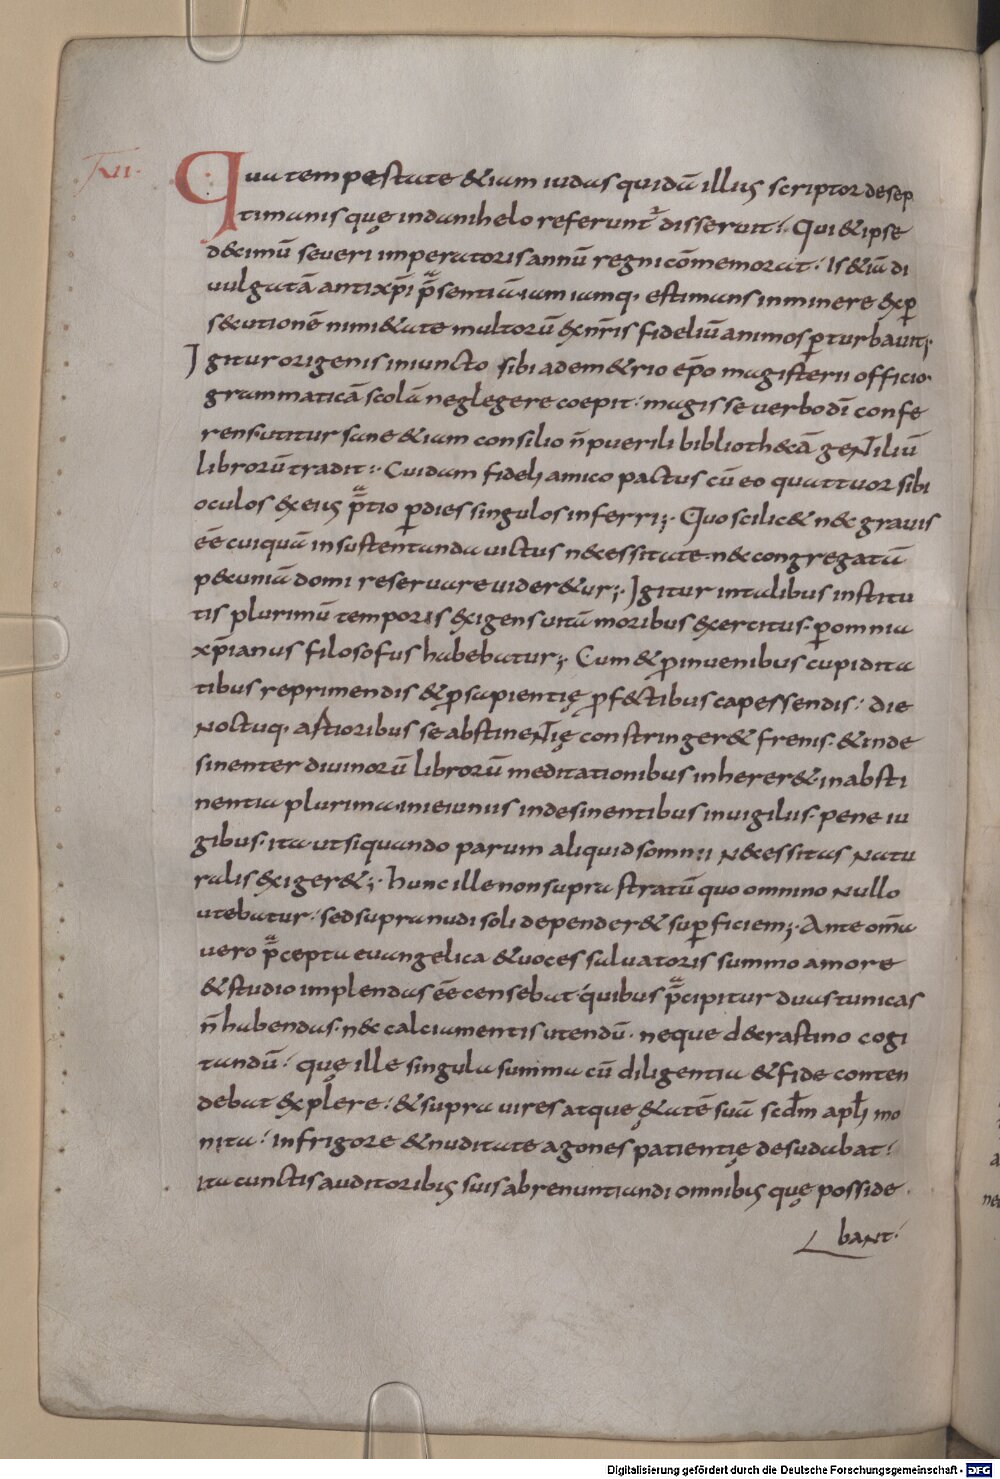 XII.
Qua tempestate &iam iudas quidā illius scriptor de sep
timanis quę in danihelo referunt̄ disseruit. Qui & ipse
d&imū severi imperatoris annū regni cōmemorat. Is &iā di
vulgatā antixp̄i p̄sentiā iam iamq. estimans inminere ex p
s&utionē nimi&ate multorū ex nr̄is fideliū animos pturbavit;
Igitur origenis iniuncto sibi a dem&rio ep̄o magisterii officio.
grammaticā scolā neglegere coepit. magis se verbo dī confe
rens. utitur sane &iam consilio n̄ puerili biblioth&ā geNTiliū
librorū tradit. Cuidam fideli amico pactus cū eo quattuor sibi
oculos ex eius p̄tio p dies singulos inferri;. Quo scilic& n& gravis
ēē cuiquā in sustentanda victus n&essitate. n& congregatā
p&uniā domi reservare vider&ur;. Igitur in talibus institu
tis plurimū temporis exigens vitā moribus exertitus. p omnia
xp̄ianus filosofus habebatur;. Cum & p inuenibus cupidita
tibus reprimendis & p sapientię pf&tibus capessendis. die
Noctuq. astioribus se abstineNTię constringer& frenis. & inde
sinenter divinorū librorū meditationibus inherer&. in absti
nentia plurima. in ieiuniis indesinentibus in vigiliis. pene iu
gibus. ita ut si quando parum aliquid somnii N&essitas Natu
ralis exiger&;. hunc ille non supra stratū quo omnino Nullo
utebatur. sed supra nudi soli depender& supficiem;. Ante om̄a
vero p̄cepta evangelica & voces salvatoris summo amore
& studio implendas ēē censebat quibus p̄cipitur duas tunicas
n̄ habendas. n& calciamentis utendū. neque de crastino cogi
tandū. quę ille singula summa cū diligentia & fide conten
debat explere. & supra vires atque ętatē suā scdm apli mo
nita. in frigore & nuditate agones patientię desudabat.
ita cunctis auditoribus suis abrenuntiandi omnibus quę posside
baNt.
Digitalisierung gefördert durch die Deutsche Forschungsgemeinschaft - DFG